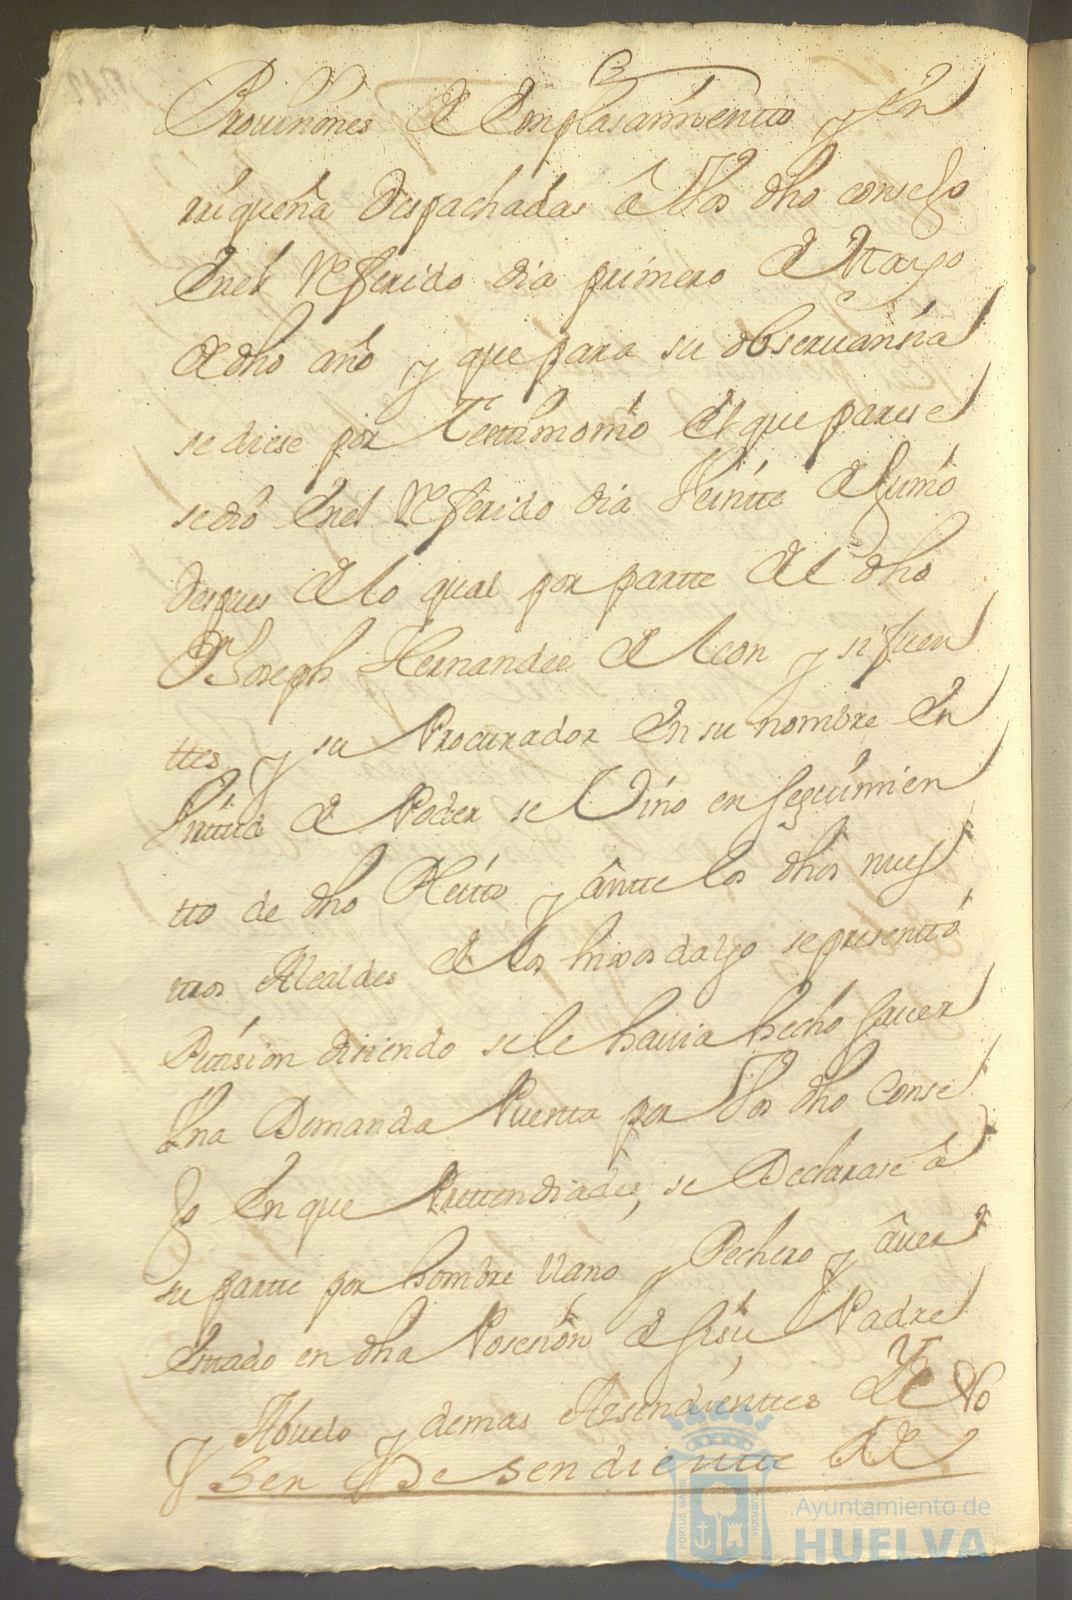 Prouiciones de Emplasamientto y En
riiqueña despachadas â Vos dho consejo
Enel Referido dia primero de Mayo
de dho año y que para su obseruansia
se diese por Testimonio El que parese
se dió Enel Referido dia Veintte de Junio
despues de lo qual por partte del dho
Dn Joseph Hernandez de Leon y sifuen
ttes y su Procurador En su nombre En
Virttud de Poder se Vino en seguimien
tto de dho Pleitto y ântte los dhos nuest
tros Alcaldes de los hixos dalgo se presenttó
Petision disiendo se le hauia hecho sauer
Una Demanda Puesta por Vos dho Conse
jo En que Prettendiades, se Declarase â
su partte por hombre llano y Pechero y âuer
Esttado en dha Posesión de si su Padre
y Abuelo y demas Assendienttes Y no
Ser Desendientte de
Ayuntamiento de
HUELVA
PORTUS MARIS
CUSTODIA